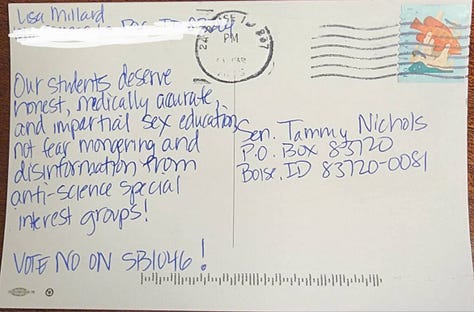 Lisa Millard
Our students deserve
honest, medically accurate,
and impartial sex education
not fear mongering and
disinformation from
anti-science special
interest groups!
VOTE NO ON SB1046!
PM
Sen. Tammy Nichols
P.O. Box 83720
Boise, ID 83720-0081